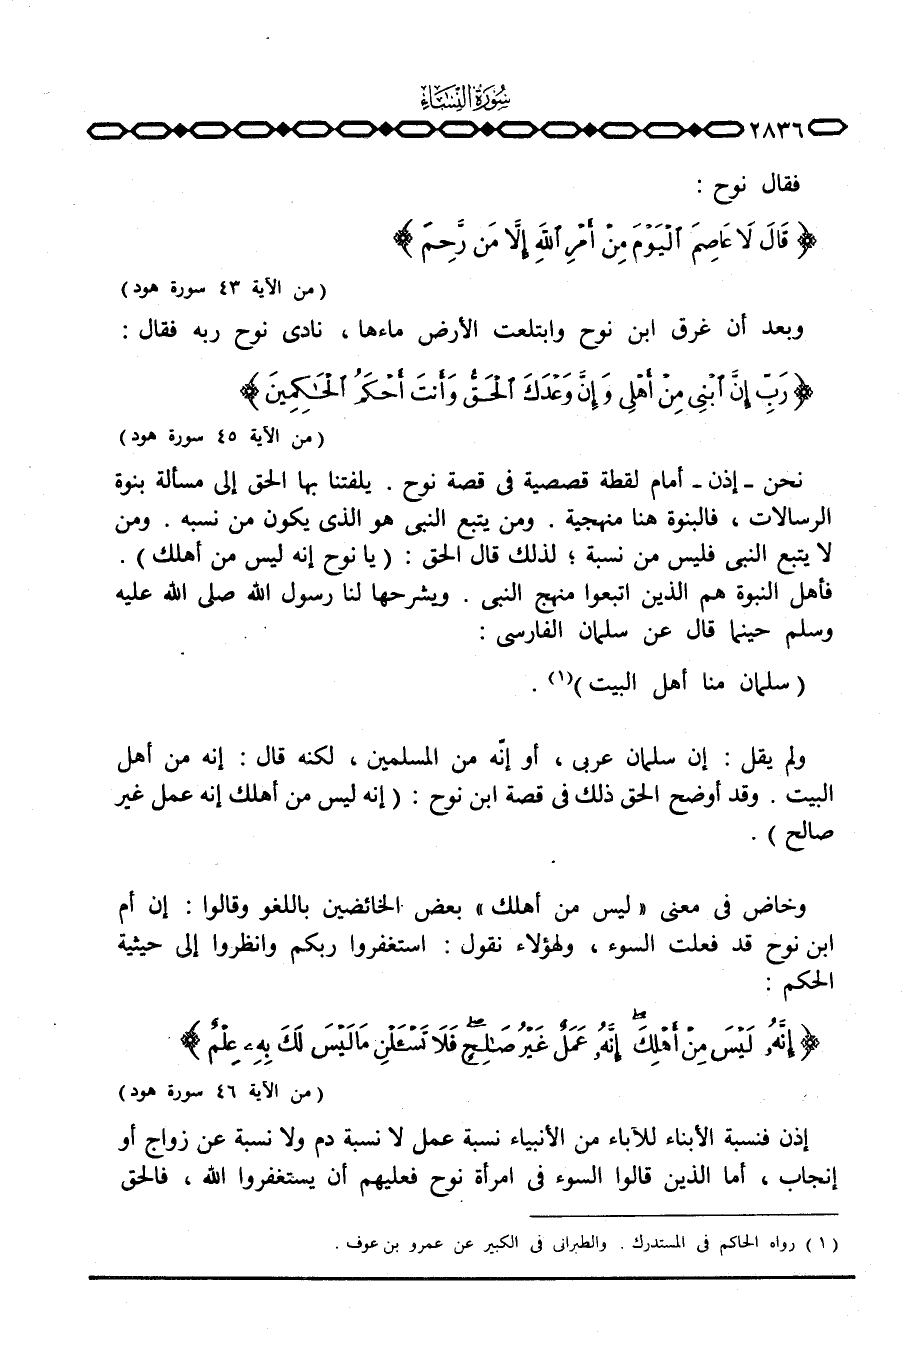 سُورَةُ النِّسَاءِ
٢٨٣٦
فقال نوح :
﴿ قَالَ لَا عَاصِمَ ٱلْيَوْمَ مِنْ أَمْرِ ٱللَّهِ إِلَّا مَن رَّحِمَ ﴾
( من الآية ٤٣ سورة هود )
وبعد أن غرق ابن نوح وابتلعت الأرض ماءها ، نادى نوح ربه فقال :
﴿ رَبِّ إِنَّ ٱبْنِي مِنْ أَهْلِي وَإِنَّ وَعْدَكَ ٱلْحَقُّ وَأَنتَ أَحْكَمُ ٱلْحَٰكِمِينَ ﴾
( من الآية ٤٥ سورة هود )
نحن ـ إذن ـ أمام لقطة قصصية فى قصة نوح . يلفتنا بها الحق إلى مسألة بنوة
الرسالات ، فالبنوة هنا منهجية . ومن يتبع النبى هو الذى يكون من نسبه . ومن
لا يتبع النبى فليس من نسبة ؛ لذلك قال الحق : ( يا نوح إنه ليس من أهلك ) .
فأهل النبوة هم الذين اتبعوا منهج النبى . ويشرحها لنا رسول الله صلى الله عليه
وسلم حينما قال عن سلمان الفارسى :
( سلمان منا أهل البيت )(١) .
ولم يقل : إن سلمان عربى ، أو إنّه من المسلمين ، لكنه قال : إنه من أهل
البيت . وقد أوضح الحق ذلك فى قصة ابن نوح : ( إنه ليس من أهلك إنه عمل غير
صالح ) .
وخاض فى معنى « ليس من أهلك » بعض الخائضين باللغو وقالوا : إن أم
ابن نوح قد فعلت السوء ، ولهؤلاء نقول : استغفروا ربكم وانظروا إلى حيثية
الحكم :
﴿ إِنَّهُۥ لَيْسَ مِنْ أَهْلِكَ ۖ إِنَّهُۥ عَمَلٌ غَيْرُ صَٰلِحٍ ۖ فَلَا تَسْـَٔلْنِ مَا لَيْسَ لَكَ بِهِۦ عِلْمٌ ﴾
( من الآية ٤٦ سورة هود )
إذن فنسبة الأبناء للآباء من الأنبياء نسبة عمل لا نسبة دم ولا نسبة عن زواج أو
إنجاب ، أما الذين قالوا السوء فى امرأة نوح فعليهم أن يستغفروا الله ، فالحق
( ١ ) رواه الحاكم فى المستدرك . والطبرانى فى الكبير عن عمرو بن عوف .